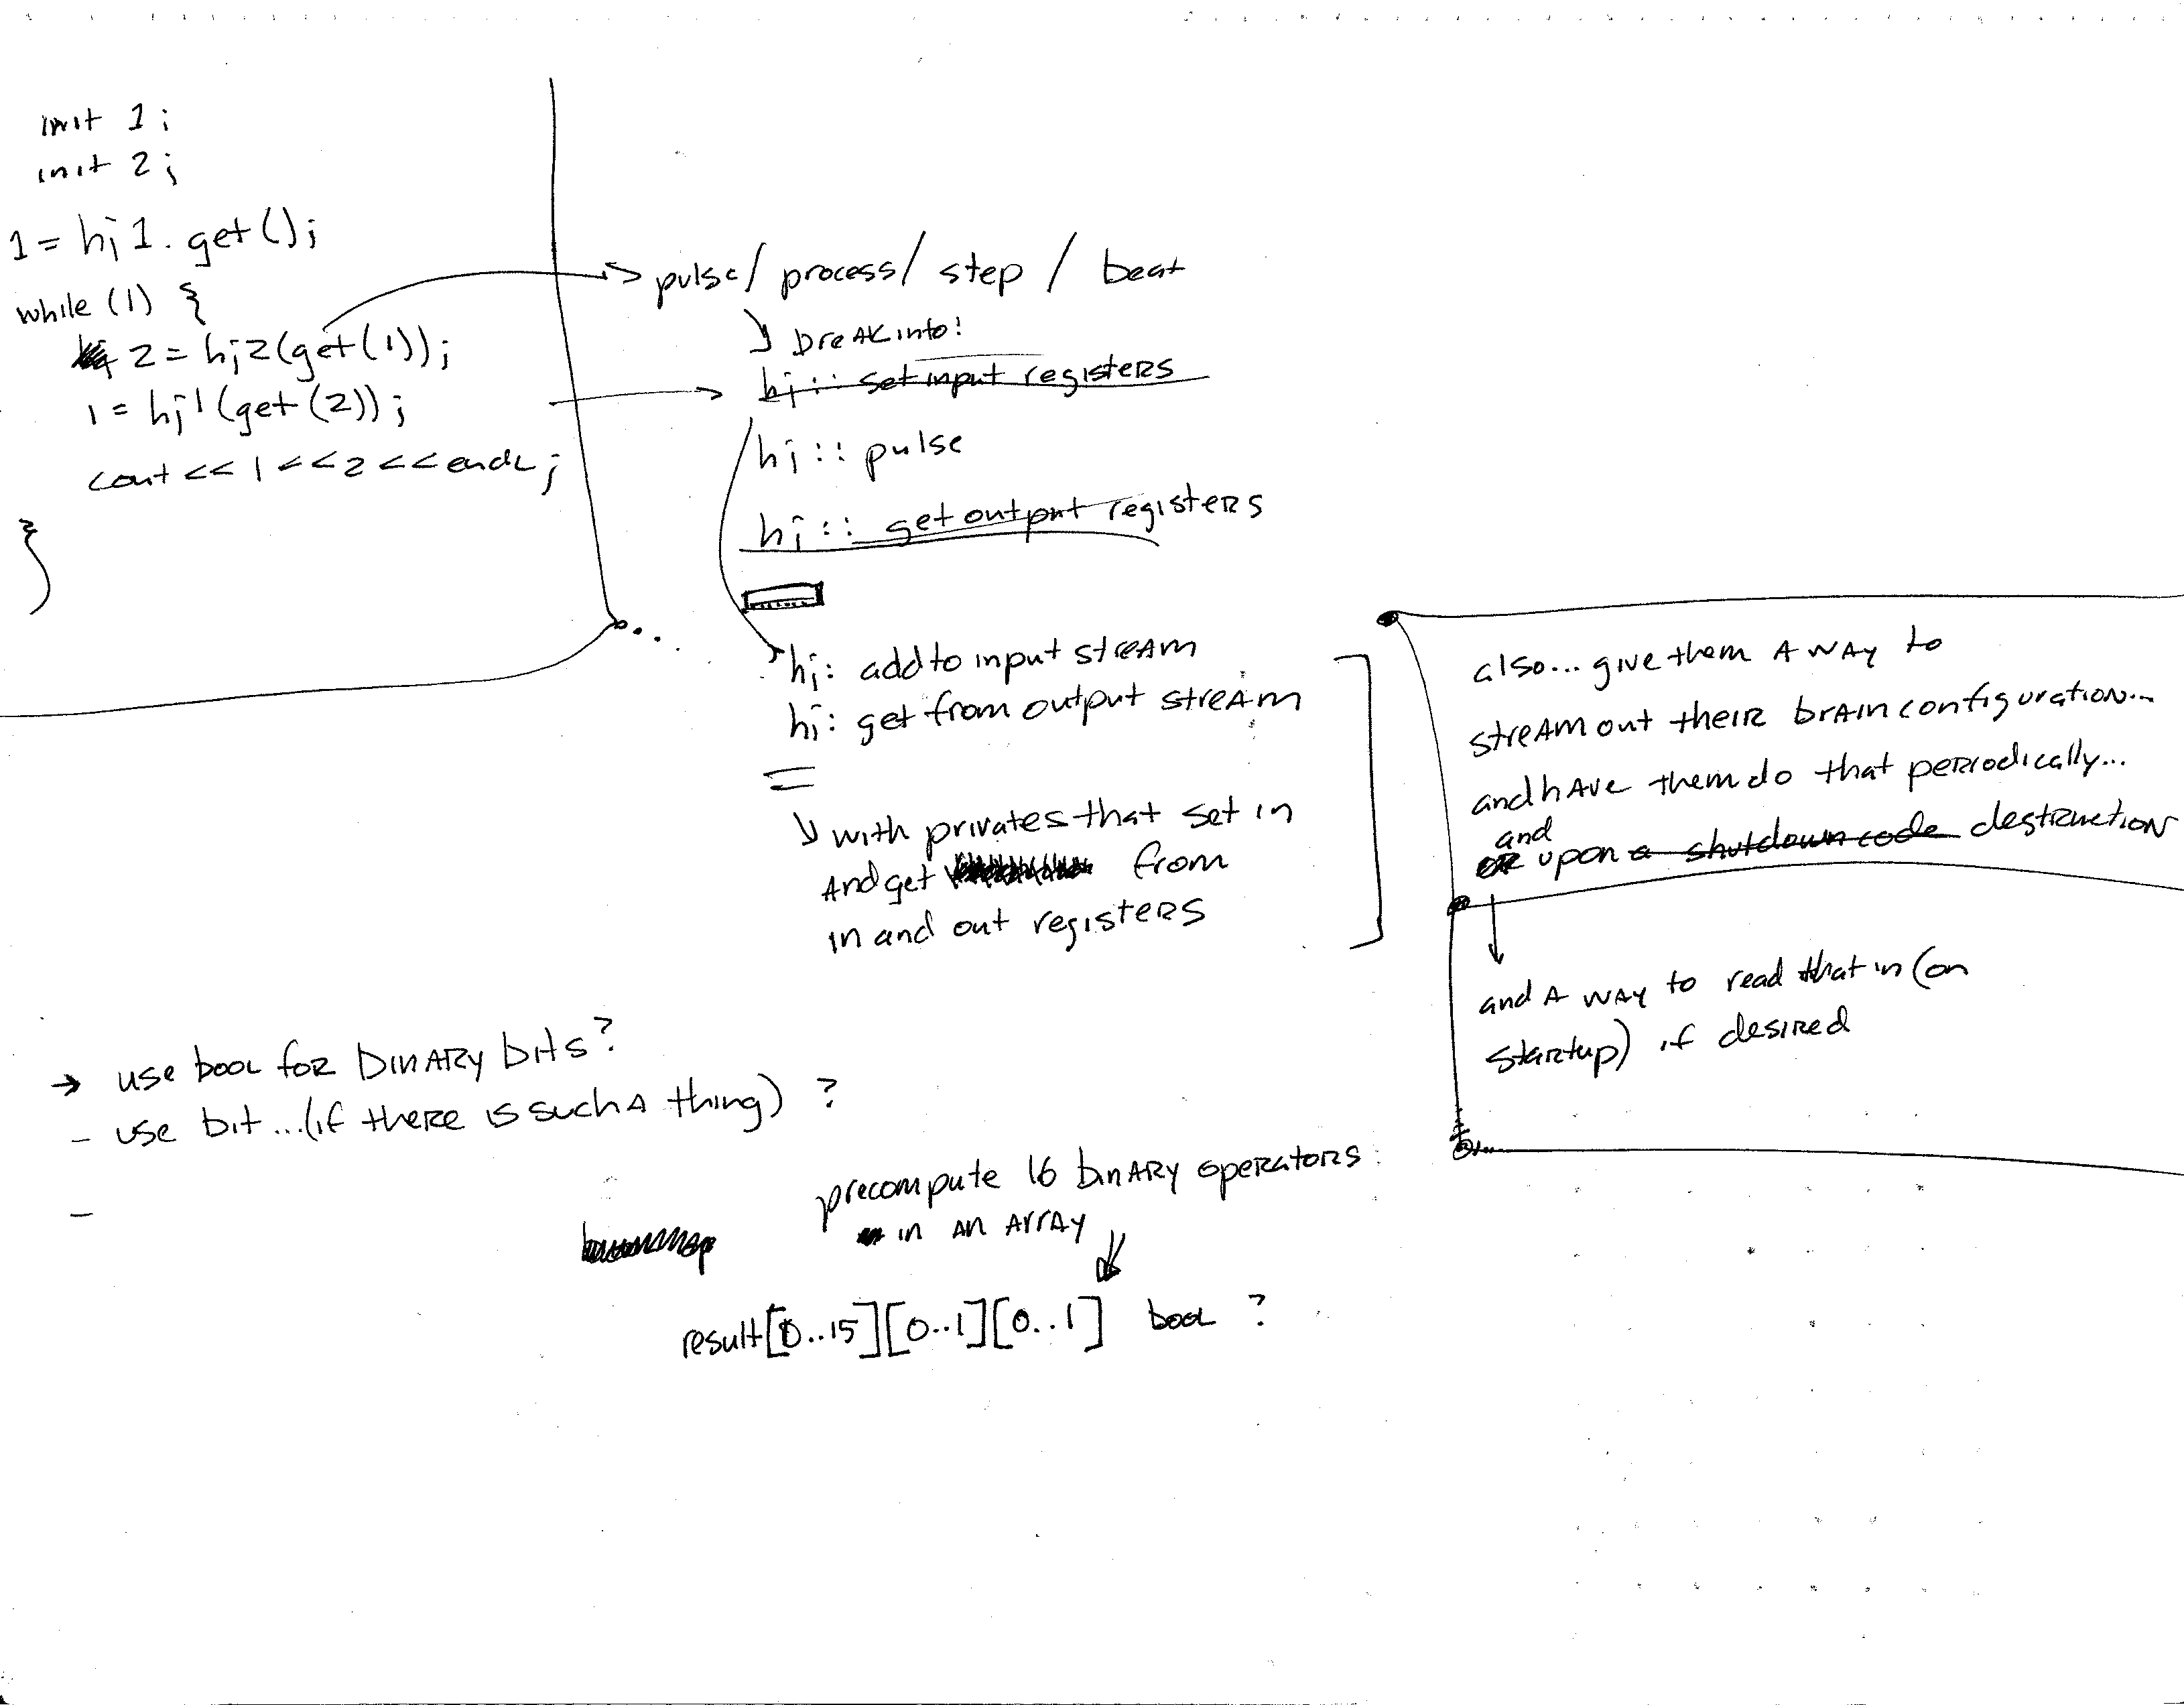 init 1;
init 2;
1 = hj1.get();
while (1) {
2 = hj2(get(1));
1 = hj1(get(2));
cout << 1 << 2 << endl;
}
pulse/ process/ step / beat
break into:
hj:: set input registers
hj:: pulse
hj:: get output registers
hj: add to input stream
hj: get from output stream
with privates that set in
and get from
in and out registers
also... give them a way to
stream out their brain configuration...
and have them do that periodically...
and
or upon a shutdown code destruction
and a way to read that in (on
startup) if desired
→ use bool for binary bits?
- use bit...(if there is such a thing) ?
-
precompute 16 binary operators
in an array
result[0..15][0..1][0..1] bool ?